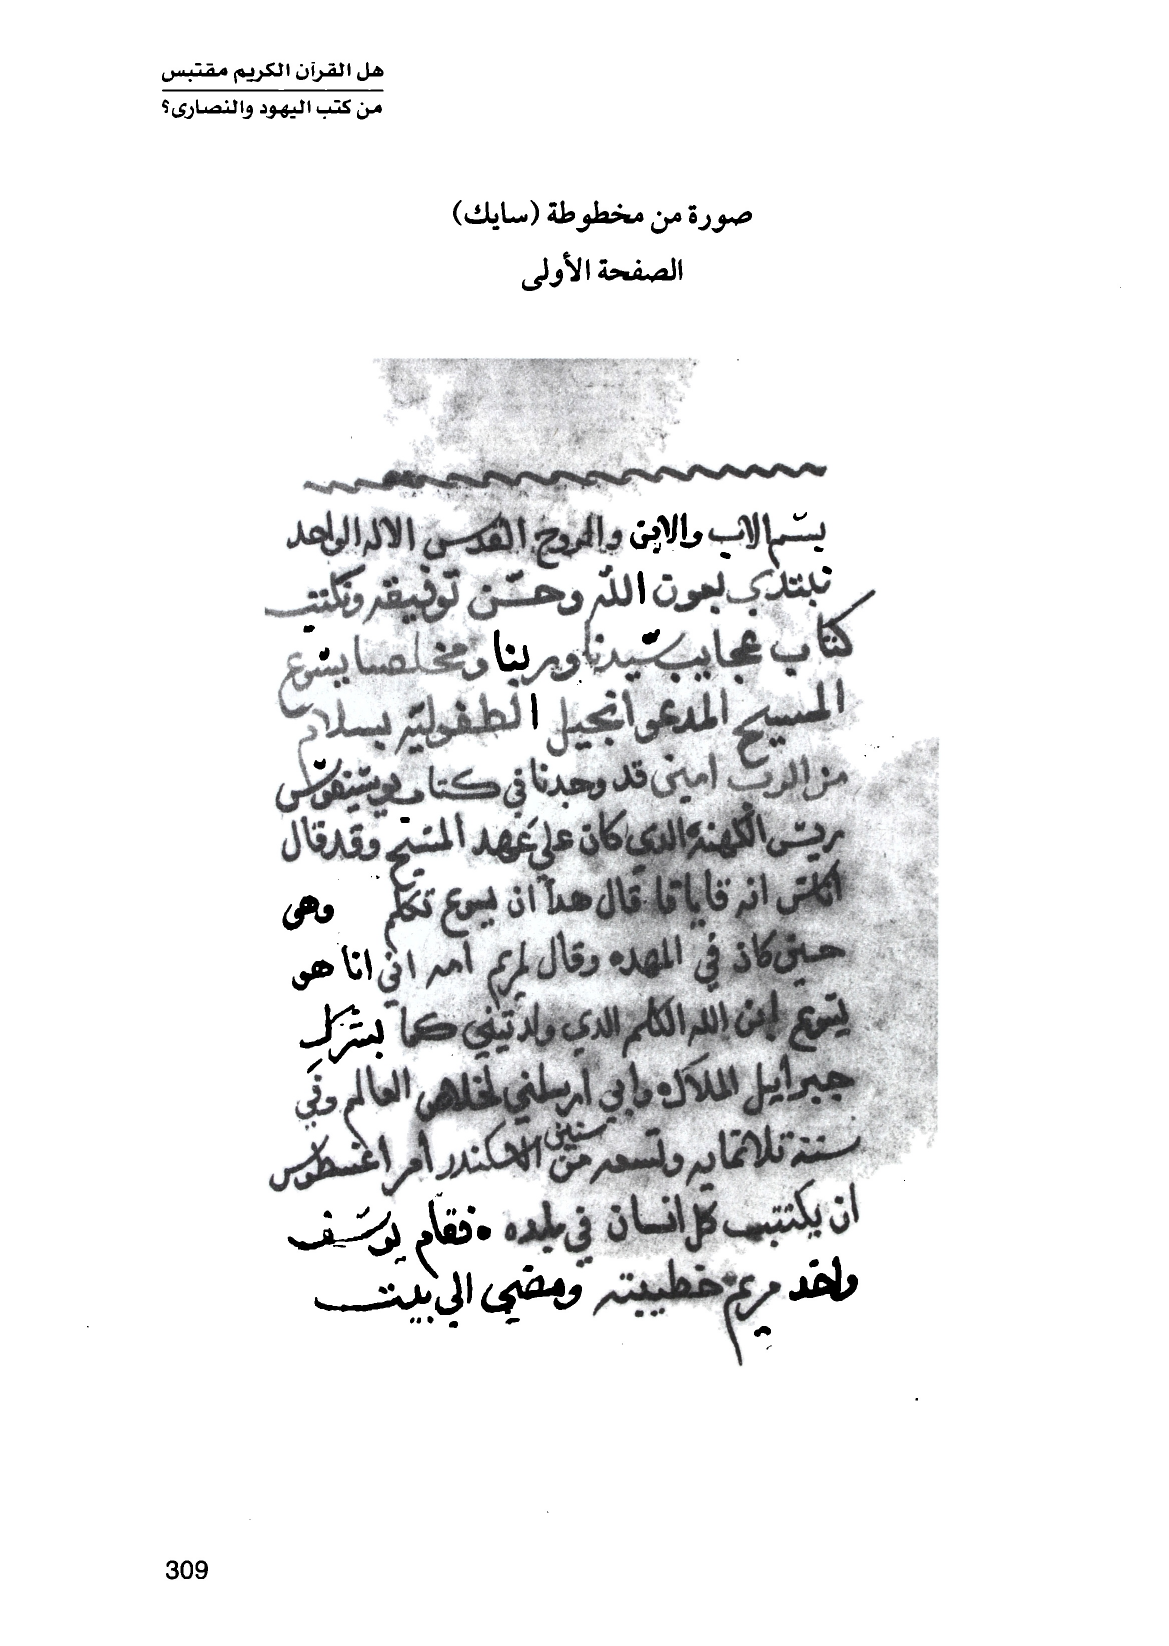 هل القرآن الكريم مقتبس
من كتب اليهود والنصارى؟
صورة من مخطوطة (سايك)
الصفحة الأولى
بسم الاب والابن والروح القدس الاله الواحد
نبتدي بعون الله وحسن توفيقه ونكتب
كتاب عجايب سيدنا وربنا ومخلصنا يسوع
المسيح المدعو انجيل الطفولية بسلام
من الرب امين قد وجدنا في كتاب يوسيفوس
ريس الكهنة الدي كان علي عهد المسيح وقد قال
اناس انه قايافا قال هدا ان يسوع تكلم وهى
حين كان في المهده وقال لمريم امه اني انا هو
يسوع ابن الله الكلم الدي ولدتيني كما بشرك
جبرايل الملاك وابي ارسلني لخلاص العالم وفي
سنة تلاتمايه وتسعه من سنين الاسكندر امر اغسطوس
ان يكتتب كل انسان في بلده فقام يوسف
واخد مريم خطيبته ومضي الي بيت
309